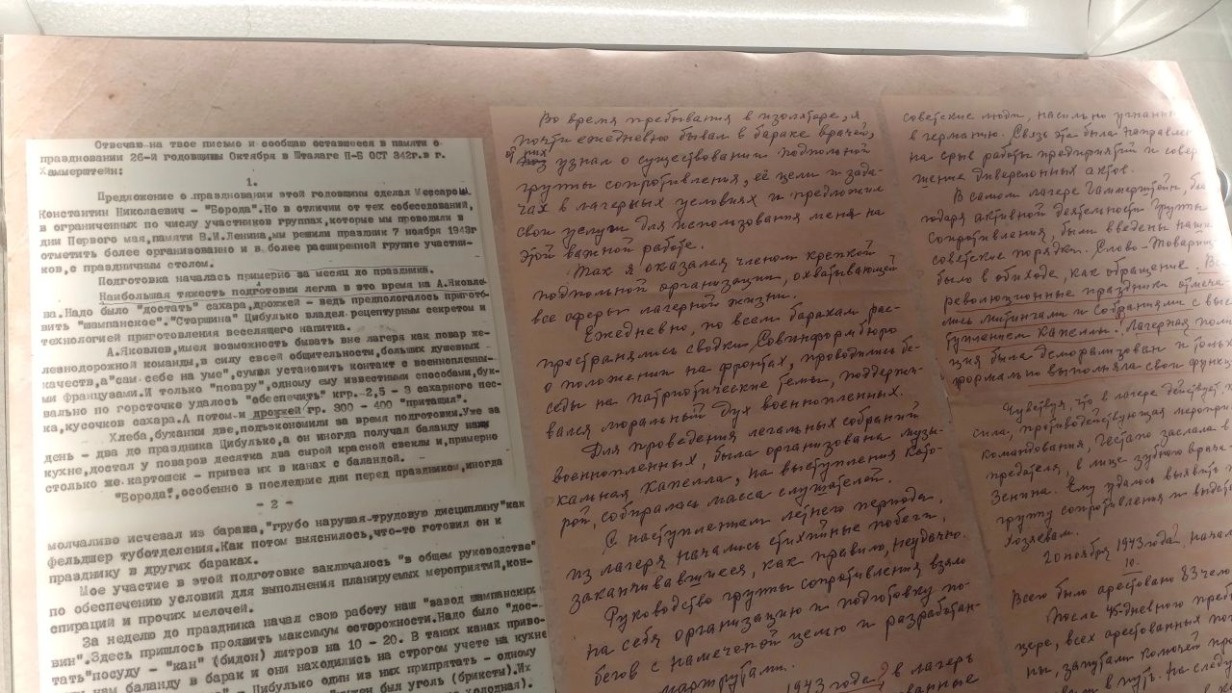 Отвечаю на твое письмо и сообщаю оставшееся в памяти о
праздновании 26-й годовщины Октября в Шталаге П-Б ОСТ 342г.в г.
Хаммерштейн:
1.
Предложение о праздновании этой годовщины сделал
Константин Николаевич - "Борода". Но в отличии от тех собеседований,
в ограниченных по числу участников группах, которые мы проводили в
дни Первого мая, памяти В.И.Ленина, мы решили праздник 7 ноября 1943г
отметить более организованно и в более расширенной группе участни-
ков, с праздничным столом.
Подготовка началась примерно за месяц до праздника.
Наибольшая тяжесть подготовки легла в это время на А.Яковле-
ва. Надо было "достать" сахара, дрожжей - ведь предпологалось пригото-
вить "шампанское". "Старшина" Цибулько владел рецептурным секретом и
технологией приготовления веселящего напитка.
А.Яковлев, имея возможность бывать вне лагеря как повар же-
лезнодорожной команды, в силу своей общительности, больших душевных
качеств, а "сам себе на уме", сумел установить контакт с военнопленны-
ми французами. И только "повару", одному ему известными способами, бук-
вально по горсточке удалось "обеспечить" кгр. 2,5 - 3 сахарного пес-
ка, кусочков сахара. А потом и дрожжей гр. 300 - 400 "притащил".
Хлеба, буханки две, подъэкономили за время подготовки. Уже за
день - два до праздника Цибулько, а он иногда получал баланду на
кухне, достал у поваров десятка два сырой красной свеклы и, примерно
столько же картошек - привез их в канах с баландой.
"Борода", особенно в последние дни перед праздником, иногда
- 2 -
молчаливо исчезал из барака, "грубо нарушая трудовую дисциплину" как
фельдшер туботделения. Как потом выяснилось, что-то готовил он к
празднику в других бараках.
Мое участие в этой подготовке заключалось "в общем руководстве"
по обеспечению условий для выполнения планируемых мероприятий, кон-
спирации и прочих мелочей.
За неделю до праздника начал свою работу наш "завод шампанских
вин". Здесь пришлось проявить максимум осторожности. Надо было "дос-
тать" посуду - "кан" (бидон) литров на 10 - 20. В таких канах приво-
зили нам баланду в барак и они находились на строгом учете на кухне
Цибулько один из них припрятать - одному
был уголь (брикеты). Их
холодная).
Во время пребывания в изоляторе, я,
почти ежедневно бывал в бараке врачей,
от них узнал о существовании подпольной
группы сопротивления, её цели и зада-
чах в лагерных условиях и предложил
свои услуги для использования меня на
этой важной работе.
Так я оказался членом крепкой
подпольной организации, охватывающей
все сферы лагерной жизни.
Ежедневно, по всем баракам рас-
пространялись сводки Совинформбюро
о положении на фронтах, проводились бе-
седы на патриотические темы, поддержи-
вался моральный дух военнопленных.
Для проведения легальных собраний
военнопленных, была организована музы-
кальная капелла, на выступления кото-
рой, собиралась масса слушателей.
С наступлением летнего периода,
из лагеря начались стихийные побеги,
заканчивавшиеся, как правило, неудачно.
Руководство группы сопротивления взяло
на себя организацию и подготовку по-
бегов с намеченой целью и разработан-
маршрутами.
1943 года в лагерь
советские люди, насильно угнан
в германию. Связь эта была направлен
на срыв работы предприятий и совер
шение диверсионных актов.
В самом лагере Гаммерштейн, бла
годаря активной деятельности группы
сопротивления, были введены наши
советские порядки. Слово-Товарищ
было в обиходе, как обращение. Все
революционные праздники отмеча
лись митингами и собраниями с выс
туплением капеллы. Лагерная поли
ция была деморализован и только
формально выполняла свои функц
Чувствуя, что в лагере действует
сила, противодействующая меропр
командования, гестапо заслала в
предателя, в лице зубного врача
Зенина. Ему удалось выявить
группу сопротивления и выдать
хозяевам.
20 ноября 1943 года, начал
10.
Всего было арестовано 83 чело
После 45-дневного преб
всех арестованных